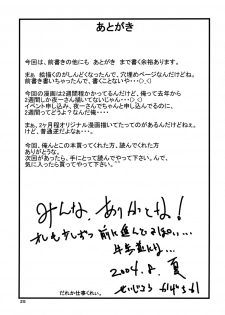 あとがき
今回は、前書きの他にも あとがき まで書く余裕あります。
まぁ、絵描くのがしんどくなったんで、穴埋めページなんだけどね。
前書きもたいしたこと書いてないんで、書くことないや…(>_<)
今回の漫画は2週間程かかってるんだけど、俺って去年から
2週間しか夜一さん描いてないじゃん…(>_<)
イベント申し込み、夜一さんでちゃんと申し込んでるのに、
2週間ってどうよ?なんだ俺…
まぁ、2ヶ月程オリジナル漫画描いてたってのがあるんだけどねぇ。
けど、普通逆だよなぁ…
今回、俺なんかの本買ってくれた方、読んでくれた方
ありがとうな。
次回があったら、手にとって読んでやってくれい。んで、
気に入ったら買ってやってくれい。
みんな、ありがとな!
2004.8.夏
だれか仕事くれぃ。